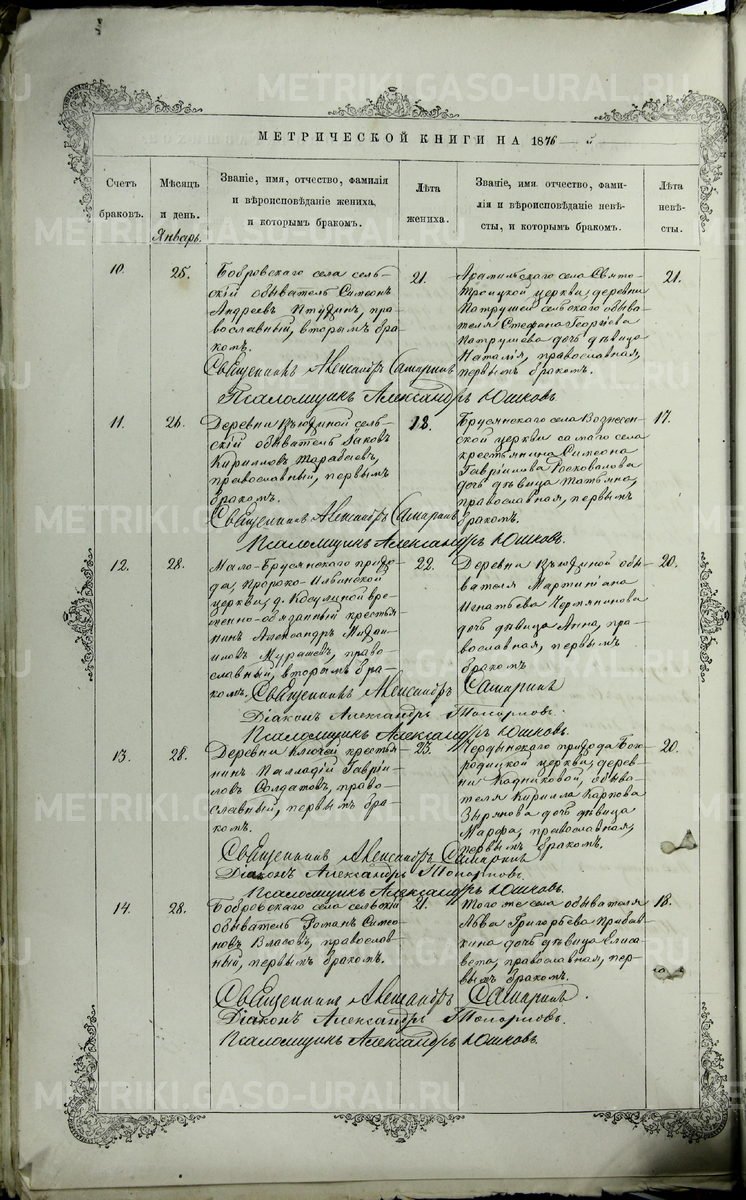 МЕТРИЧЕСКОЙ КНИГИ НА 1876
Счетъ браковъ.
Мѣсяцъ и день.
Январь.
Званіе, имя, отчество, фамилія и вѣроисповѣданіе жениха, и которымъ бракомъ.
Лѣта жениха.
Званіе, имя, отчество, фамилія и вѣроисповѣданіе невѣсты, и которымъ бракомъ.
Лѣта невѣсты.
10.
25.
Бобровскаго села сель-
скій обыватель Симеонъ
Андреевъ Птудинъ, пра-
вославный, вторымъ бра-
комъ.
21.
Арамильскаго села Свято-
Троицкой церкви, деревни
Патрушей сельскаго обыва-
теля Стефана Георгіева
Патрушева дочь дѣвица
Наталія, православная,
первымъ бракомъ.
21.
Священникъ Александръ Самаринъ
Псаломщикъ Александръ Юшковъ
11.
26.
Деревни Къюдиной сель-
скій обыватель Іаковъ
Кирилловъ Тарабаевъ,
православный, первымъ
бракомъ.
18.
Бруснянскаго села Вознесен-
ской церкви самаго села
крестьянина Симеона
Гавріилова
дочь дѣвица Татьяна,
православная, первымъ
бракомъ.
17.
Священникъ Александръ Самаринъ
Псаломщикъ Александръ Юшковъ.
12.
28.
Мало-Брусянскаго прихо-
да, Пророко-Ильинской
церкви, д. Косулиной вре-
менно-обязанный крестья-
нинъ Александръ Михаи-
ловъ Мурашевъ, право-
славный, вторымъ бра-
комъ.
22.
Деревни Къюдиной обы-
вателя Мартиніана
Игнатьева Чермянинова
дочь дѣвица Анна, пра-
вославная, первымъ
бракомъ
20.
Священникъ Александръ Самаринъ
Діаконъ Александръ Топорковъ.
Псаломщикъ Александръ Юшковъ.
13.
28.
Деревни Ключей крестья-
нинъ Палладій Гавріи-
ловъ Солдатовъ, право-
славный, первымъ бра-
комъ.
23.
прихода Бого-
родицкой церкви, дерев-
ни Кадниковой, обыва-
теля Кирилла Карпова
Зырянова дочь дѣвица
Марфа, православная,
первымъ бракомъ.
20.
Священникъ Александръ Самаринъ
Діаконъ Александръ Топорковъ.
Псаломщикъ Александръ Юшковъ.
14.
28.
Бобровскаго села сельскій
обыватель Романъ Симео-
новъ Власовъ, православ-
ный, первымъ бракомъ.
21.
Того же села обывателя
Аввы Григорьева
дочь дѣвица Елиса-
вета, православная, пер-
вымъ бракомъ.
18.
Священникъ Александръ Самаринъ
Діаконъ Александръ Топорковъ.
Псаломщикъ Александръ Юшковъ.
METRIKI.GASO-URAL.RU